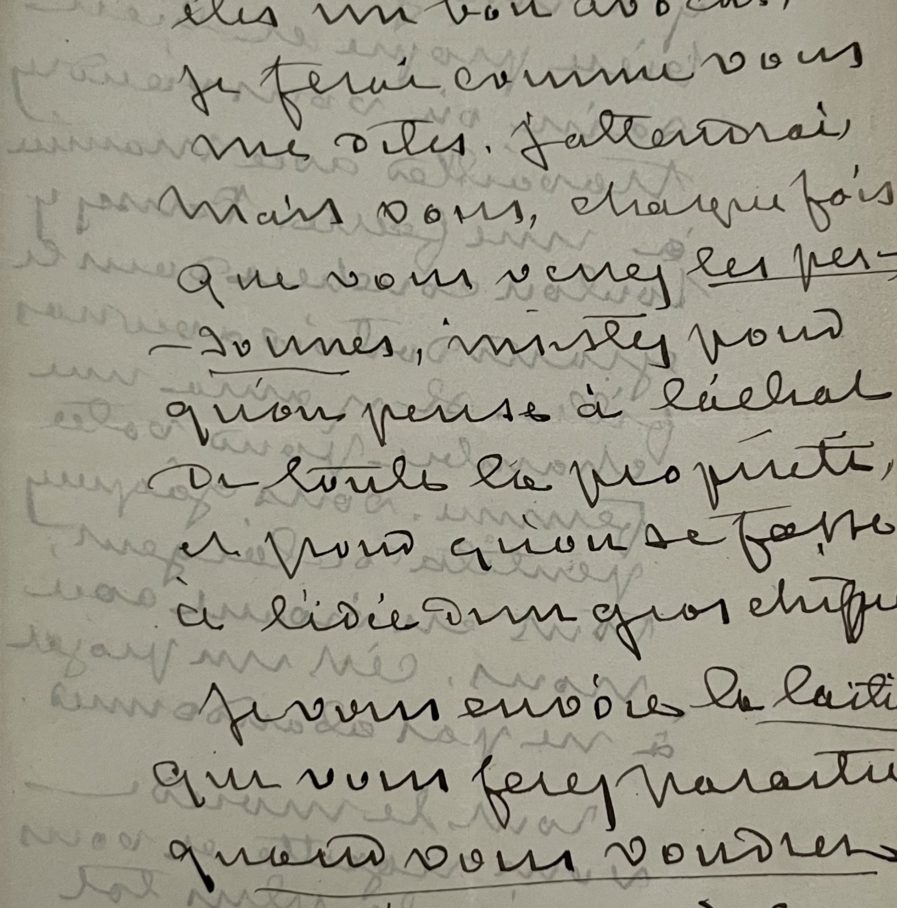 êtes un bon avocat,
je ferai comme vous
me dites. J'attendrai,
mais vous, chaque fois
que vous verrez les per-
-sonnes, insistez pour
qu'on pense à l'achat
de toute la propriété,
et pour qu'on se fasse
à l'idée d'un gros chiffre
Je vous envoie la
que vous ferez paraître
quand vous voudrez